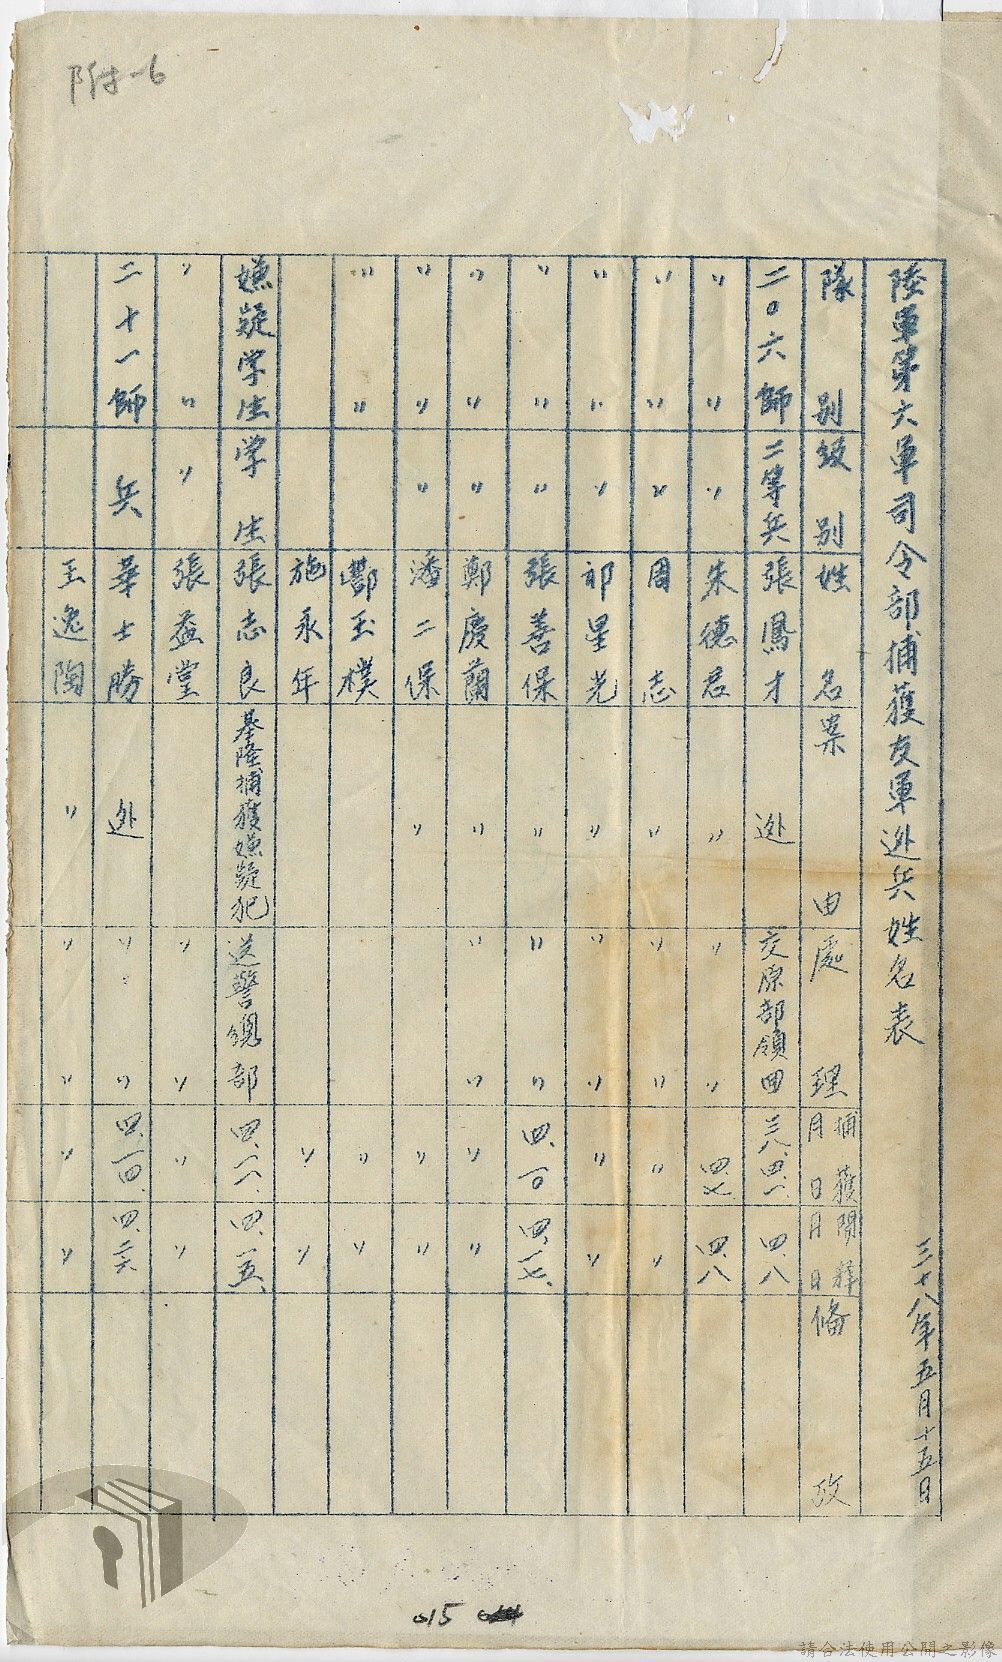 附-6
陸軍第六軍司令部捕獲友軍逃兵姓名表
三十八年五月十五日
隊別 級別 姓名 案由 處理 捕獲月日 開釋月日 備攷
二〇六師 二等兵 張鳳才 逃 交原部領回 三八.四.一. 四.八
〃 〃 〃 朱德君 〃 〃 〃 四.七 四.八
〃 〃 〃 周志 〃 〃 〃 〃 〃
〃 〃 〃 祁星光 〃 〃 〃 〃 〃
〃 〃 〃 張善保 〃 〃 〃 四.一〇 四.一七.
〃 〃 〃 鄭慶蘭 〃 〃 〃 〃 〃
〃 〃 〃 潘二保 〃 〃 〃
〃 〃 酆玉樸 〃 〃
施永年 〃 〃
嫌疑学生 学生 張志良 基隆捕獲嫌疑犯 送警總部 四.一一. 四.一五.
〃 〃 〃 張益堂 〃 〃 〃 〃
二十一師 兵 華士勝 逃 〃 〃 四.一四. 四.二六.
王逸陶 〃 〃 〃 〃 〃
015
請合法使用公開之影像